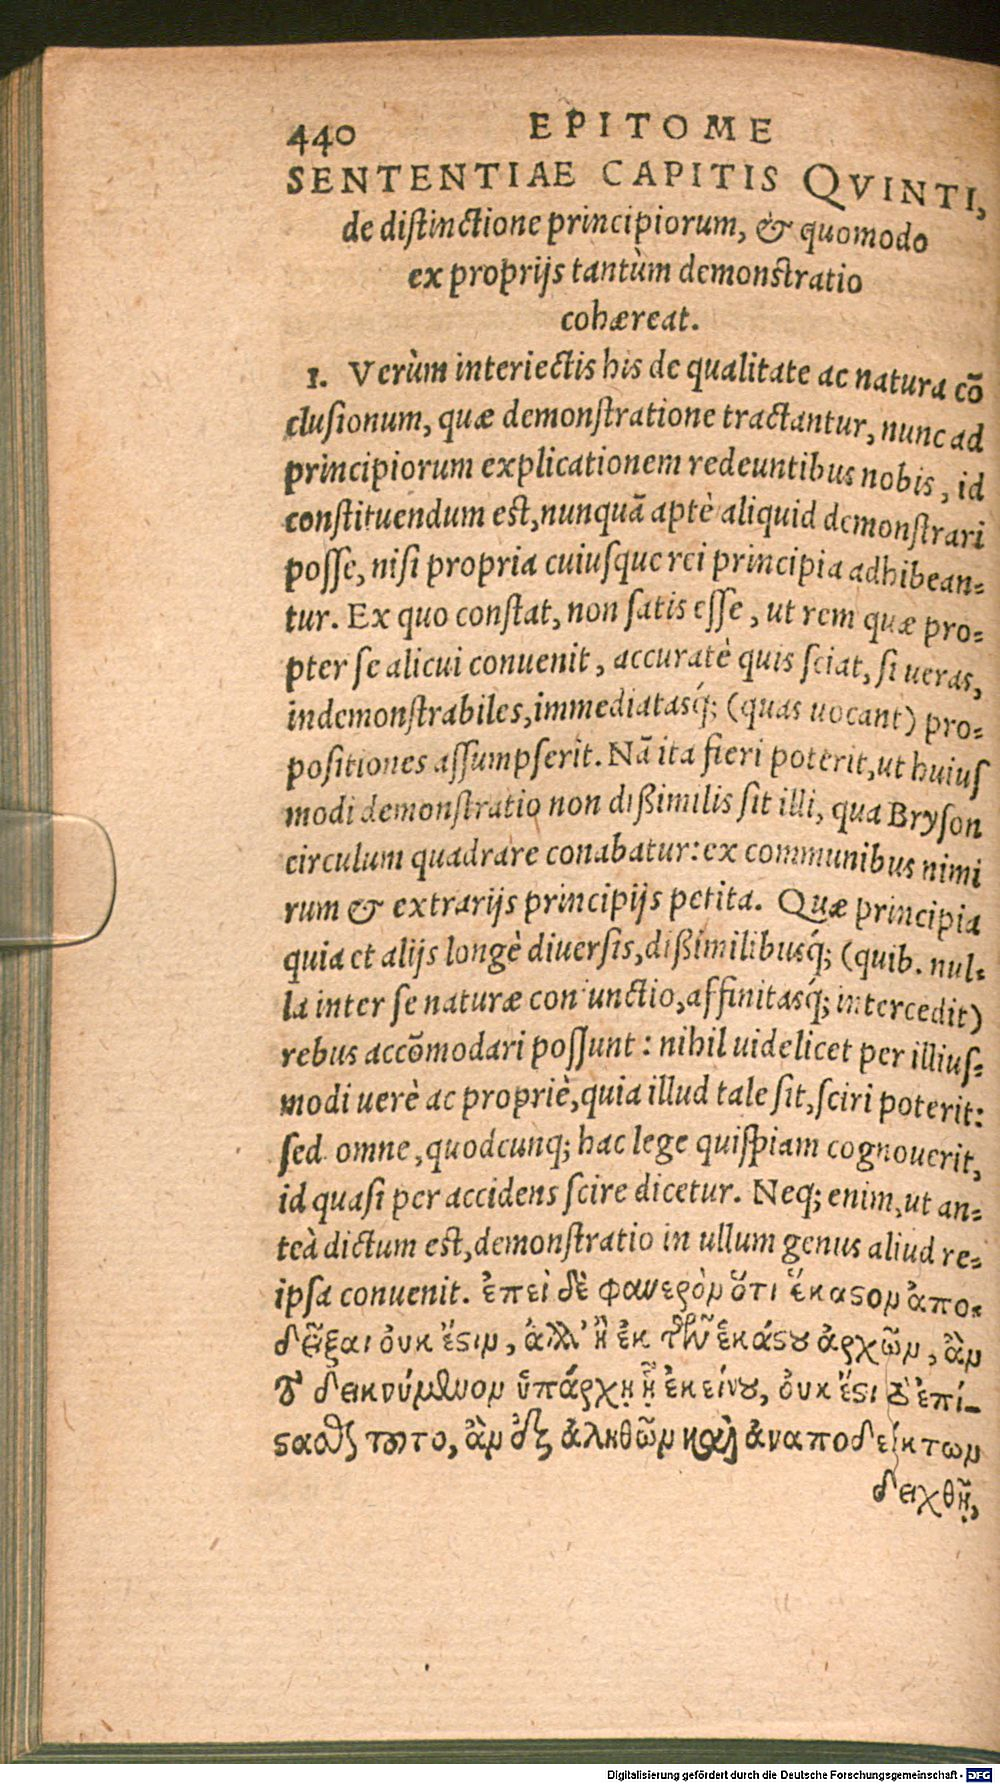 440 EPITOME
SENTENTIAE CAPITIS QVINTI,
de distinctione principiorum, & quomodo
ex proprijs tantùm demonstratio
cohæreat.
1. Verùm interiectis his de qualitate ac natura cō
clusionum, quæ demonstratione tractantur, nunc ad
principiorum explicationem redeuntibus nobis, id
constituendum est, nunquā aptè aliquid demonstrari
posse, nisi propria cuiusque rei principia adhibean=
tur. Ex quo constat, non satis esse, ut rem quæ pro=
pter se alicui conuenit, accuratè quis sciat, si ueras,
indemonstrabiles, immediatasq́; (quas uocant) pro=
positiones assumpserit. Nā ita fieri poterit, ut huius
modi demonstratio non dißimilis sit illi, qua Bryson
circulum quadrare conabatur: ex communibus nimi
rum & extrarijs principijs petita. Quæ principia
quia et alijs longè diuersis, dißimilibusq́; (quib. nul=
la inter se naturæ coniunctio, affinitasq́; intercedit)
rebus accōmodari possunt: nihil uidelicet per illius=
modi uerè ac propriè, quia illud tale sit, sciri poterit:
sed omne, quodcunq; hac lege quispiam cognouerit,
id quasi per accidens scire dicetur. Neq; enim, ut an=
teà dictum est, demonstratio in ullum genus aliud re=
ipsa conuenit. ἐπεὶ δὲ φανερὸν ὅτι ἕκαστον ἀπο=
δεῖξαι οὐκ ἔστιν, ἀλλ' ἢ ἐκ τῶν ἑκάστου ἀρχῶν, ἂν
τὸ δεικνύμενον ὑπάρχῃ ᾗ ἐκεῖνο, οὐκ ἔστι τὸ ἐπί-
στασθαι τοῦτο, ἂν ἐξ ἀληθῶν καὶ ἀναποδείκτων
δειχθῇ,
Digitalisierung gefördert durch die Deutsche Forschungsgemeinschaft - DFG